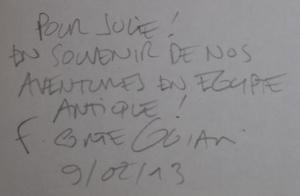 POUR JULIE!
EN SOUVENIR DE NOS
AVENTURES EN EGYPTE
ANTIQUE!
F.
9/02/13